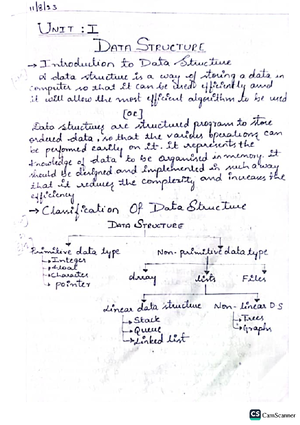 11/8/23
UNIT : I
DATA STRUCTURE
→ Introduction to Data Structure
A data structure is a way of storing a data in
computer so that it can be used efficiently and
it will allow the most efficient algorithm to be used
[OR]
Data structures are structured program to store
ordered data, so that the various operations can
be performed easily on it. It represents the
knowledge of data to be organised in memory. It
should be designed and implemented in such a way
that it reduces the complexity and increases the
efficiency
→ Classification Of Data Structure
DATA STRUCTURE
Primitive data type Non-primitive data type
→ Integer
→ float
→ Character
→ pointer
Array lists Files
Linear data structure Non-linear DS
→ Stack → Trees
→ Queue → Graphs
→ Linked list
CS CamScanner